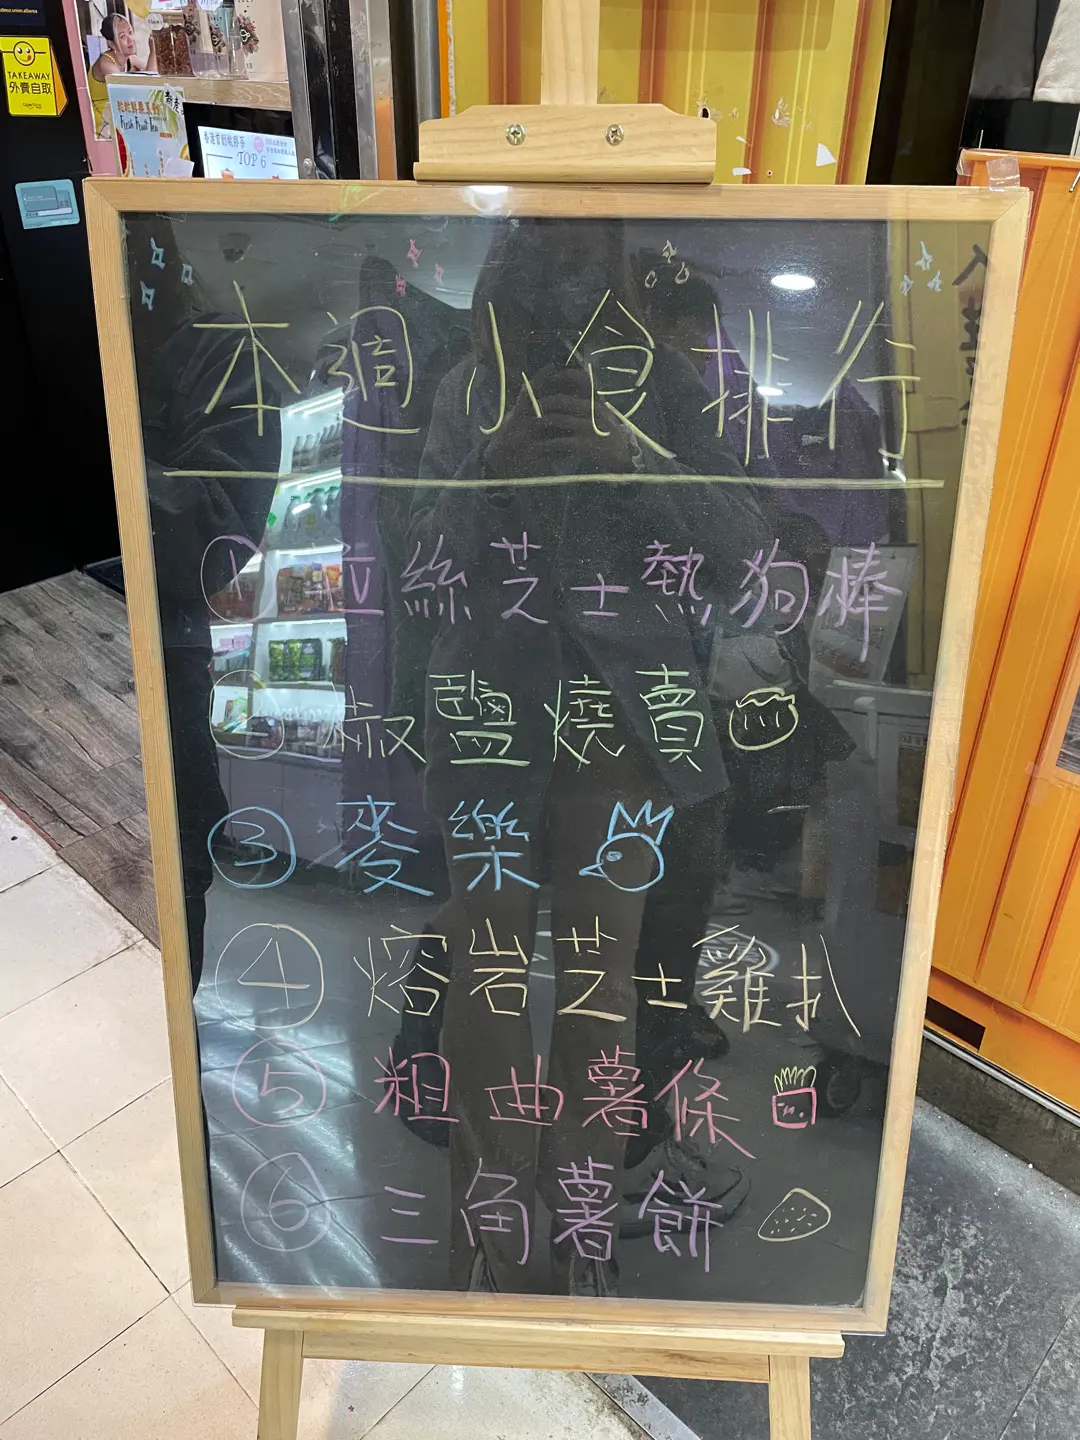 TAKEAWAY
外賣自取
Fresh Fruit Tea
TOP 6
本週小食排行
① 拉絲芝士熱狗棒
② 椒鹽燒賣
③ 麥樂
④ 熔岩芝士雞扒
⑤ 粗曲薯條
⑥ 三角薯餅